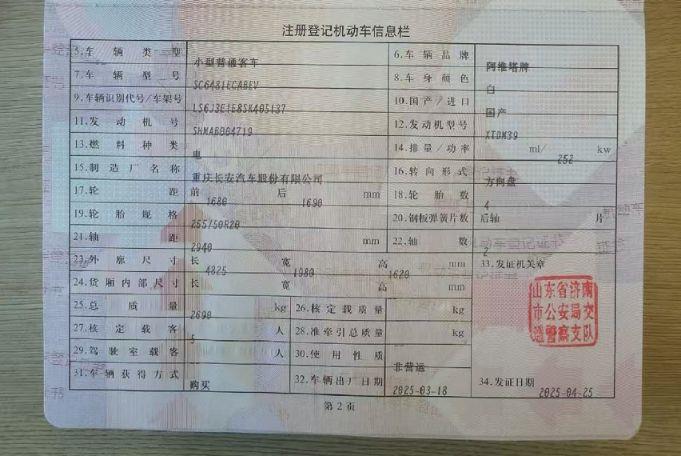 注册登记机动车信息栏
5.车辆类型 小型普通客车 6.车辆品牌 阿维塔牌
7.车辆型号 SC6481ECABEV 8.车身颜色 白
9.车辆识别代号/车架号 LS6J3E1E8SK405137 10.国产/进口 国产
11.发动机号 SHMAB004719 12.发动机型号 XTDM39
13.燃料种类 电 14.排量/功率 ml/ 252 kw
15.制造厂名称 重庆长安汽车股份有限公司 16.转向形式 方向盘
17.轮距 前 1680 后 1690 mm 18.轮胎数 4
19.轮胎规格 255/50R20 20.钢板弹簧片数 后轴 片
21.轴距 2940 mm 22.轴数 2
23.外廓尺寸 长 4825 宽 1980 高 1620 mm 33.发证机关章
24.货厢内部尺寸 长 宽 高 mm
25.总质量 2690 kg 26.核定载质量 kg
27.核定载客 5 人 28.准牵引总质量 kg
29.驾驶室载客 人 30.使用性质 非营运
31.车辆获得方式 购买 32.车辆出厂日期 2025-03-18 34.发证日期 2025-04-25
山东省济南
市公安局交
通警察支队
第2页